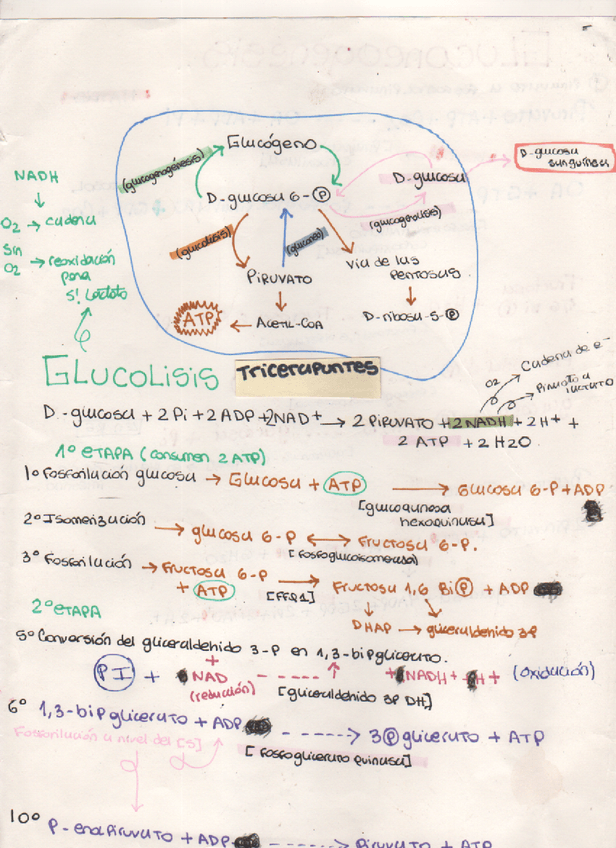 Glucógeno
(glucogenogénesis)
D-glucosa
sanguínea
NADH
D-glucosa 6-P
D-glucosa
(glucogenolisis)
O2 → cadena
Sin
O2 → reoxidación
para
(glucolisis)
Vía de las
pentosas
Piruvato
ATP ← Acetil-CoA
D-ribosa-5-P
GLUCOLISIS Tricerapuntes
O2
Cadena de e-
Piruvato a
lactato
D-glucosa + 2 Pi + 2 ADP + 2NAD+ → 2 Piruvato + 2 NADH + 2H+ +
2 ATP + 2 H2O
1º ETAPA (consumen 2 ATP)
1º Fosforilación glucosa → Glucosa + ATP → Glucosa 6-P + ADP
[glucoquinasa
hexoquinasa]
2º Isomerización → glucosa 6-P ↔ Fructosa 6-P.
[fosfoglucoisomerasa]
3º Fosforilación → Fructosa 6-P
+ ATP → Fructosa 1,6 BiP + ADP
[PFQ1]
2º ETAPA
DHAP → gliceraldehido 3-P
5º Conversión del gliceraldehido 3-P en 1,3-bipglicerato.
PI + NAD + -----→ + NADH + H+ (oxidación)
(reducción) [gliceraldehido 3P DH]
6º 1,3-bipglicerato + ADP -----> 3P glicerato + ATP
Fosforilación a nivel del [S]
[fosfoglicerato quinasa]
10º P-enolpiruvato + ADP -----> Piruvato + ATP